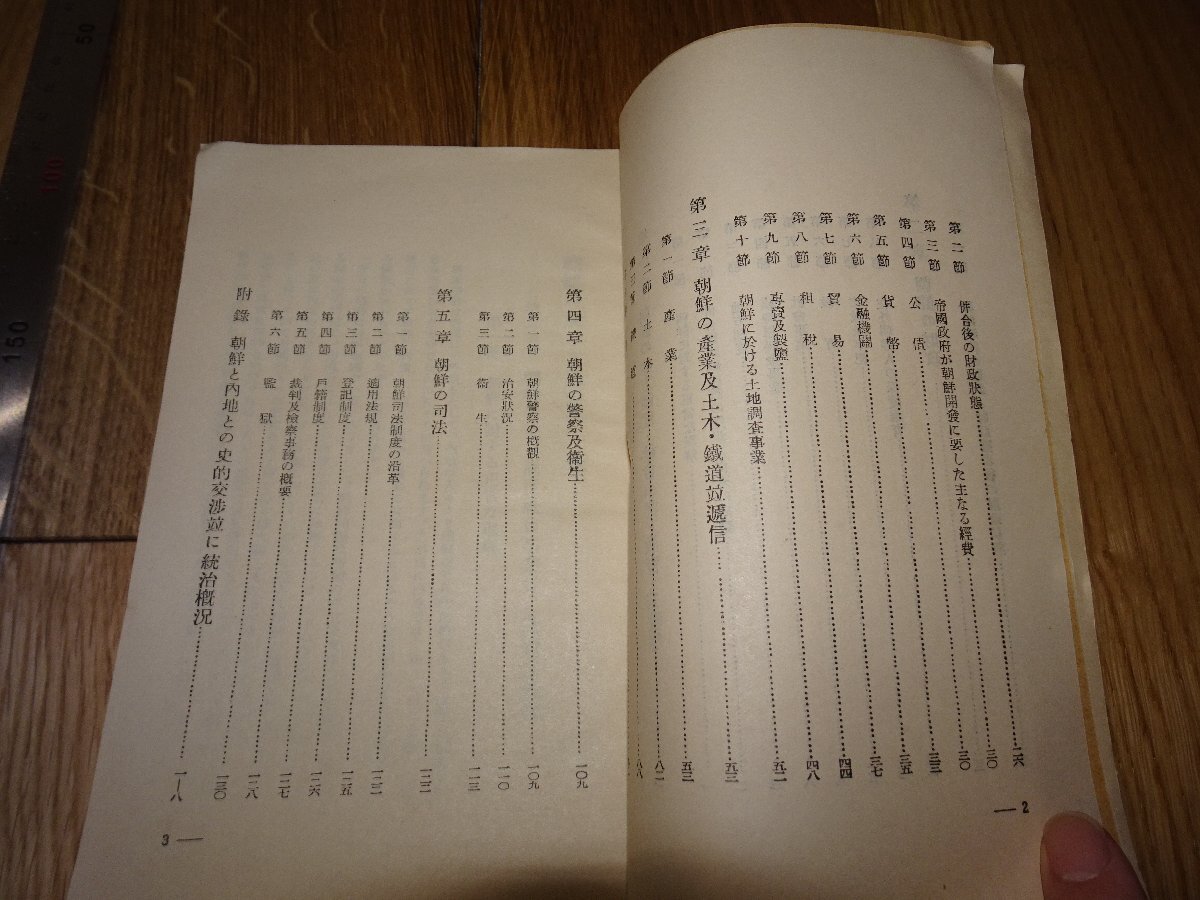 第二節 併合後の財政狀態 二六
第三節 帝國政府が朝鮮開發に要した主なる經費 三〇
第四節 公債
第五節 貨幣 三五
第六節 金融機關 三七
第七節 貿易 四四
第八節 租稅 四八
第九節 專賣及製鹽 五二
第十節 朝鮮に於ける土地調査事業 五三
第三章 朝鮮の產業及土木・鐵道竝遞信 五三
第一節 產業
第二節 土木
2
第四章 朝鮮の警察及衞生 一〇九
第一節 朝鮮警察の槪觀 一〇九
第二節 治安狀況 一一〇
第三節 衞生 一一三
第五章 朝鮮の司法 一二二
第一節 朝鮮司法制度の沿革
第二節 適用法規 一二二
第三節 登記制度 一二五
第四節 戶籍制度 一二六
第五節 裁判及檢察事務の槪要 一二七
第六節 監獄 一二八
附錄 朝鮮と內地との史的交涉竝に統治槪況 一-八
3
50
100
150